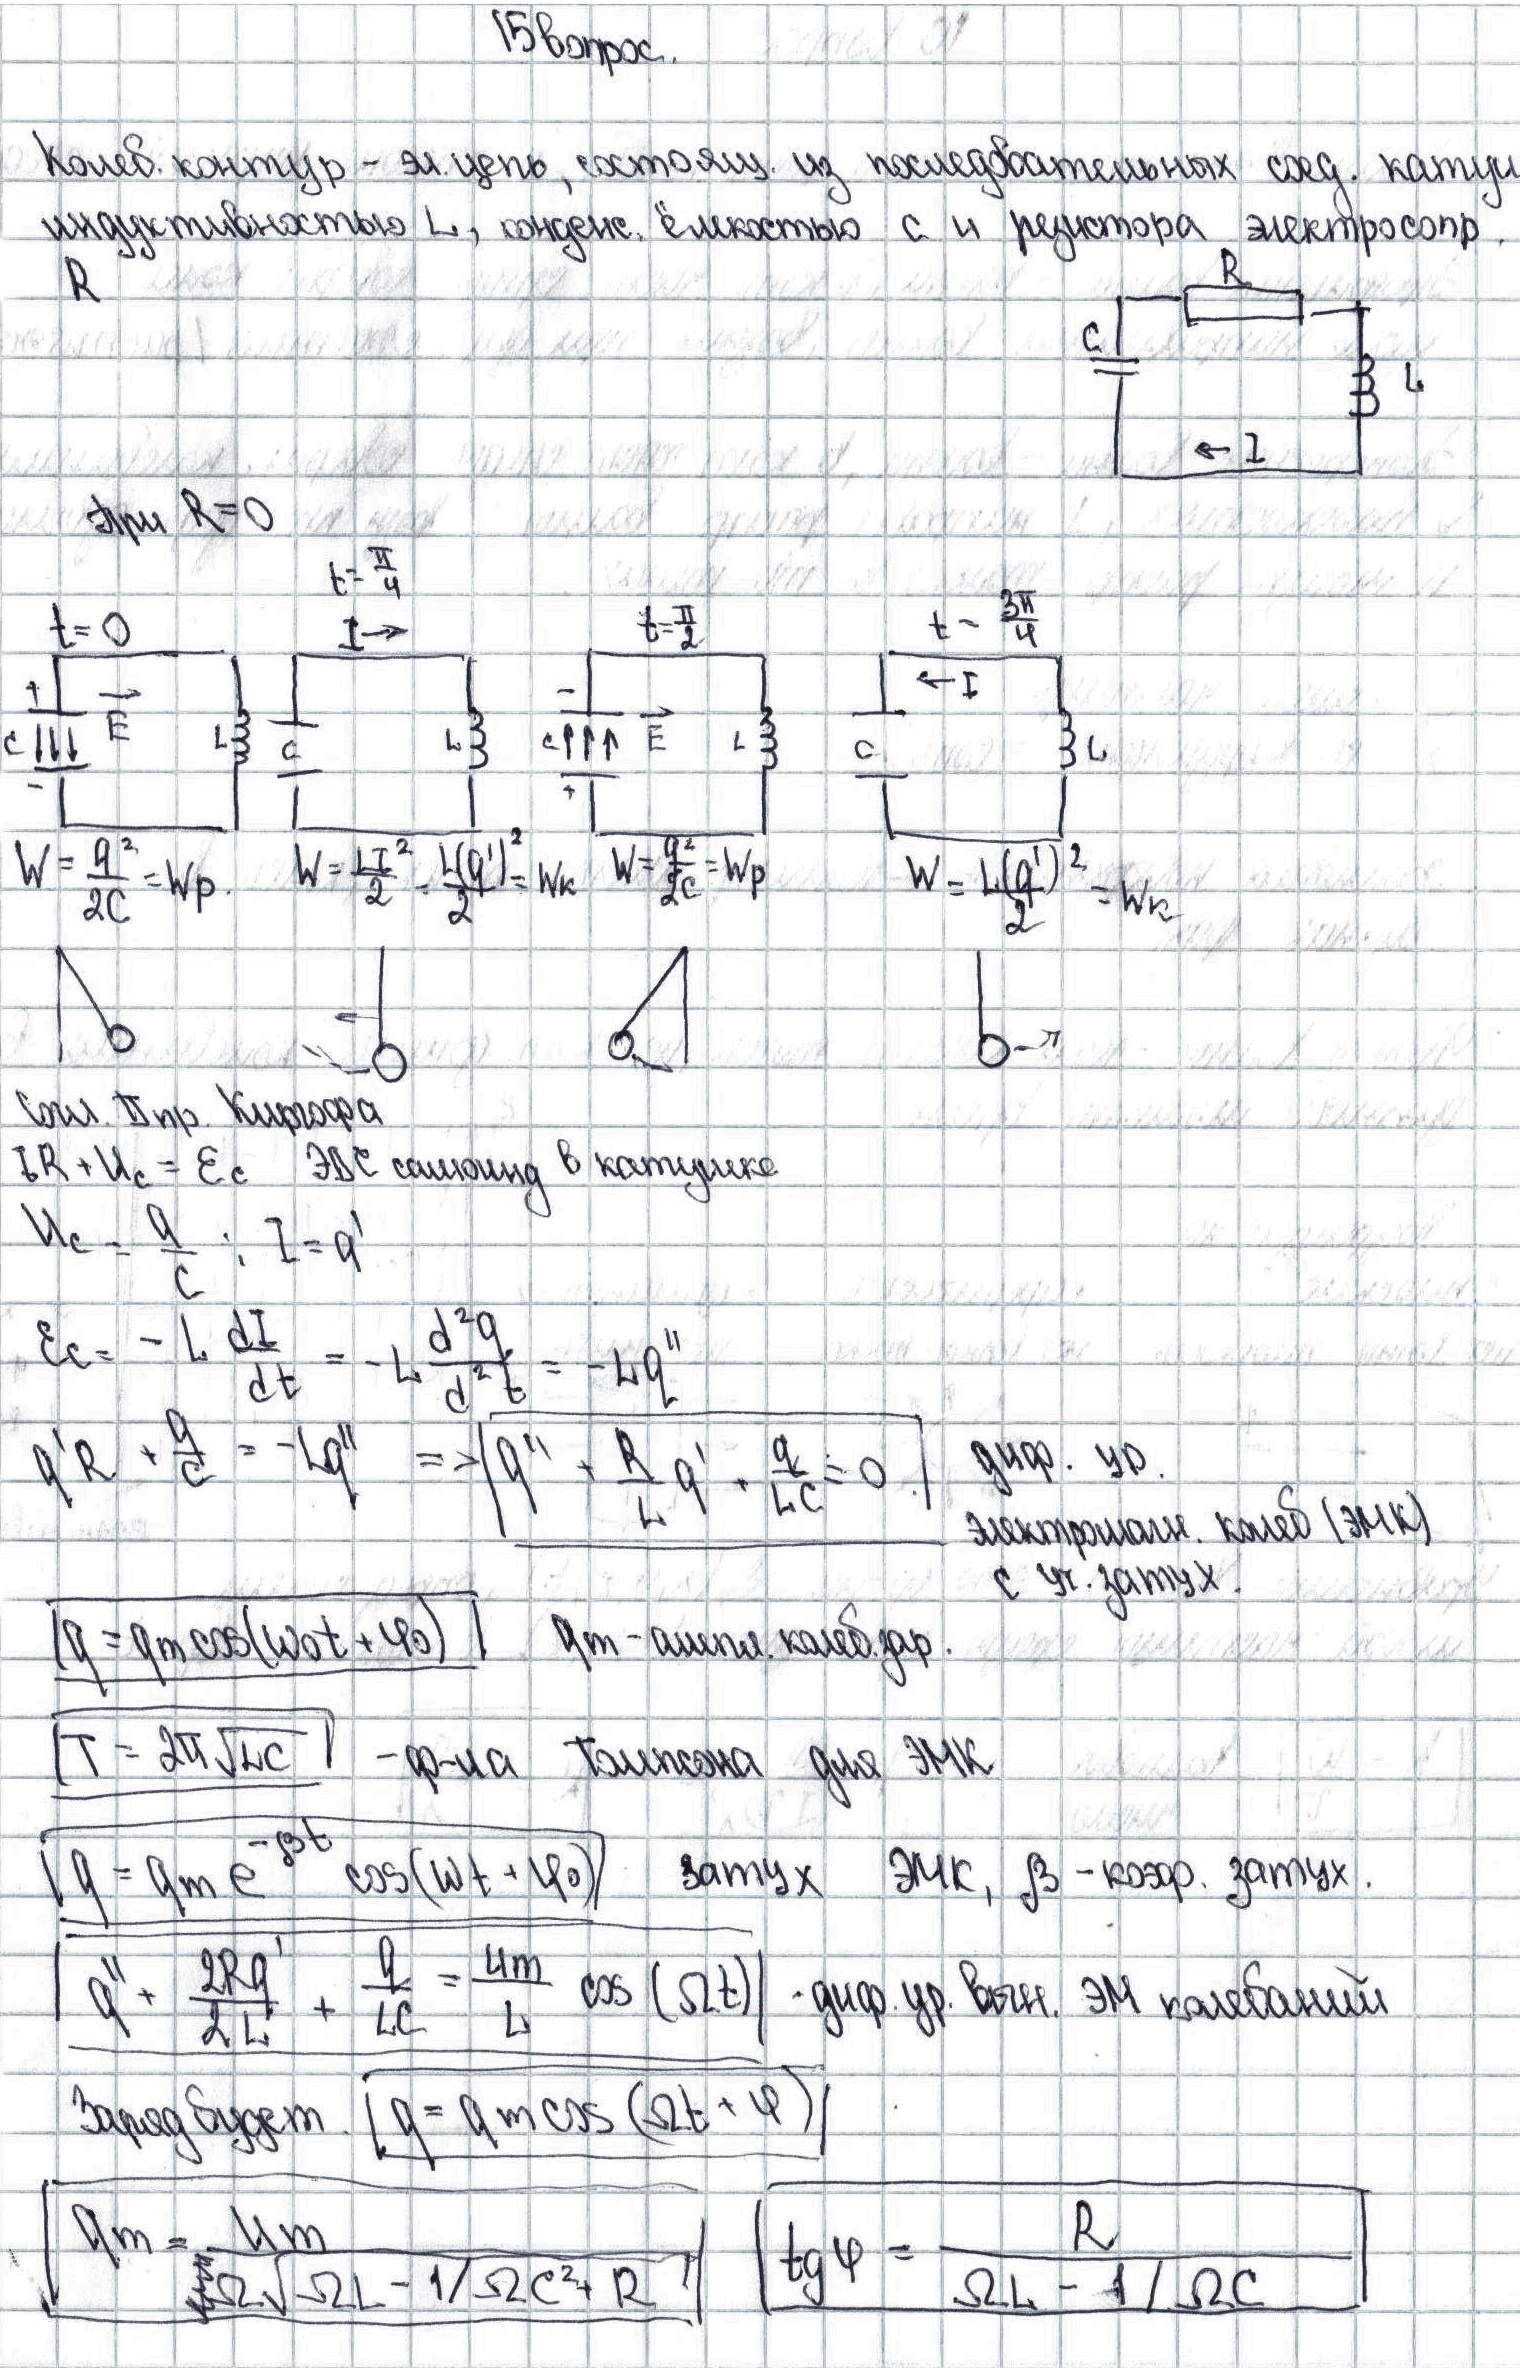 15 вопрос.
Колеб. контур – эл. цепь, состоящ. из последвоательных соед. катуш
индуктивностью L, конденс. ёмкостью C и резистора электросопр.
R
R
C
L
← I
При R = 0
t = 0
t = π/4
I →
t = π/2
t – 3π/4
← I
+
C
–
E
L
C
L
–
C
+
E
L
C
L
W = q²/2C = Wp.
W = LI²/2 = L(q')²/2 = Wк
W = q²/2C = Wp
W = L(q')²/2 = Wк
Согл. II пр. Киргофа
IR + Uc = Ec ЭДС самоинд в катушке
Uc = q/C ; I = q'
Ec = – L dI/dt = – L d²q/d²t = – Lq''
q'R + q/C = – Lq'' => q'' + R/L q' + q/LC = 0. диф. ур.
электромагн. колеб (ЭМК)
с уч. затух.
q = qm cos(ω₀t + φ₀) qm – ампл. колеб. зар.
T = 2π√LC – ф-ла Томпсона для ЭМК
q = qm e^–βt cos(ωt + φ₀) затух ЭМК, β – коэф. затух.
q'' + 2Rq'/2L + q/LC = Um/L cos (Ωt) - диф. ур. вын. ЭМ колебаний
Заряд будет. q = qm cos (Ωt + φ)
qm = Um/Ω√ΩL – 1/ΩC² + R
tg φ = R/ΩL – 1/ΩC